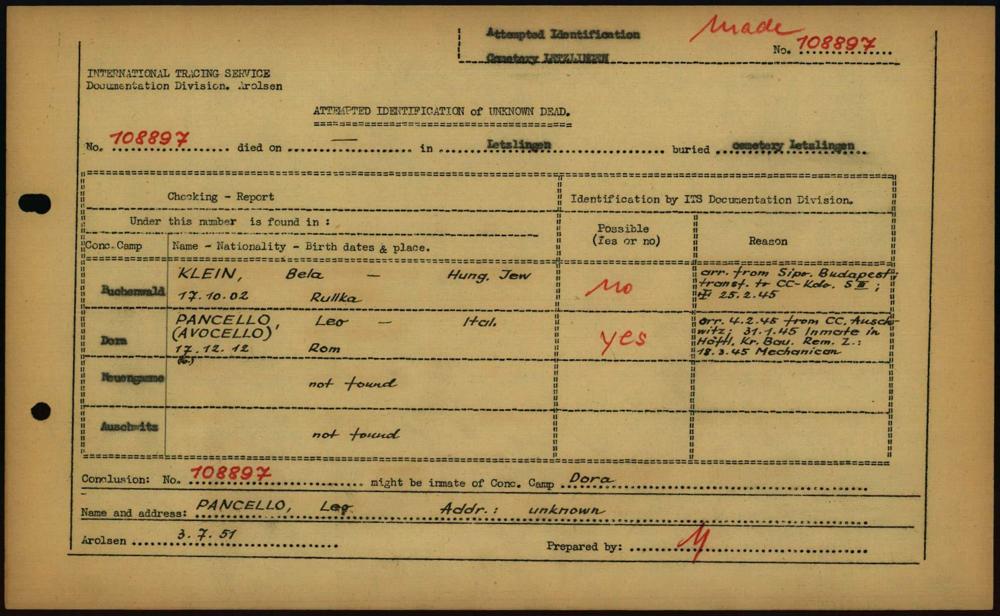 Attempted Identification
Cemetery LETZLINGEN
made
No. 108897
INTERNATIONAL TRACING SERVICE
Documentation Division. Arolsen
ATTEMPTED IDENTIFICATION of UNKNOWN DEAD.
No. 108897 died on — in Letzlingen buried cemetery Letzlingen
Checking - Report
Identification by ITS Documentation Division.
Under this number is found in :
Possible
(Yes or no)
Reason
Conc.Camp
Name - Nationality - Birth dates & place.
Buchenwald
KLEIN, Bela — Hung. Jew
17.10.02 Rullka
No
arr. from Sipo. Budapest;
transf. to CC-Kdo. S III ;
25.2.45
Dora
PANCELLO, Leo — Ital.
(AVOCELLO)
17.12.12 Rom
(6.)
yes
arr. 4.2.45 from CC. Ausch-
witz; 31.1.45 Inmate in
Häftl. Kr. Bau. Rem. Z.:
18.3.45 Mechanican
Neuengamme
not found
Auschwitz
not found
Conclusion: No. 108897 might be inmate of Conc. Camp Dora
Name and address: PANCELLO, Leo Addr.: unknown
Arolsen 3.7.51
Prepared by: